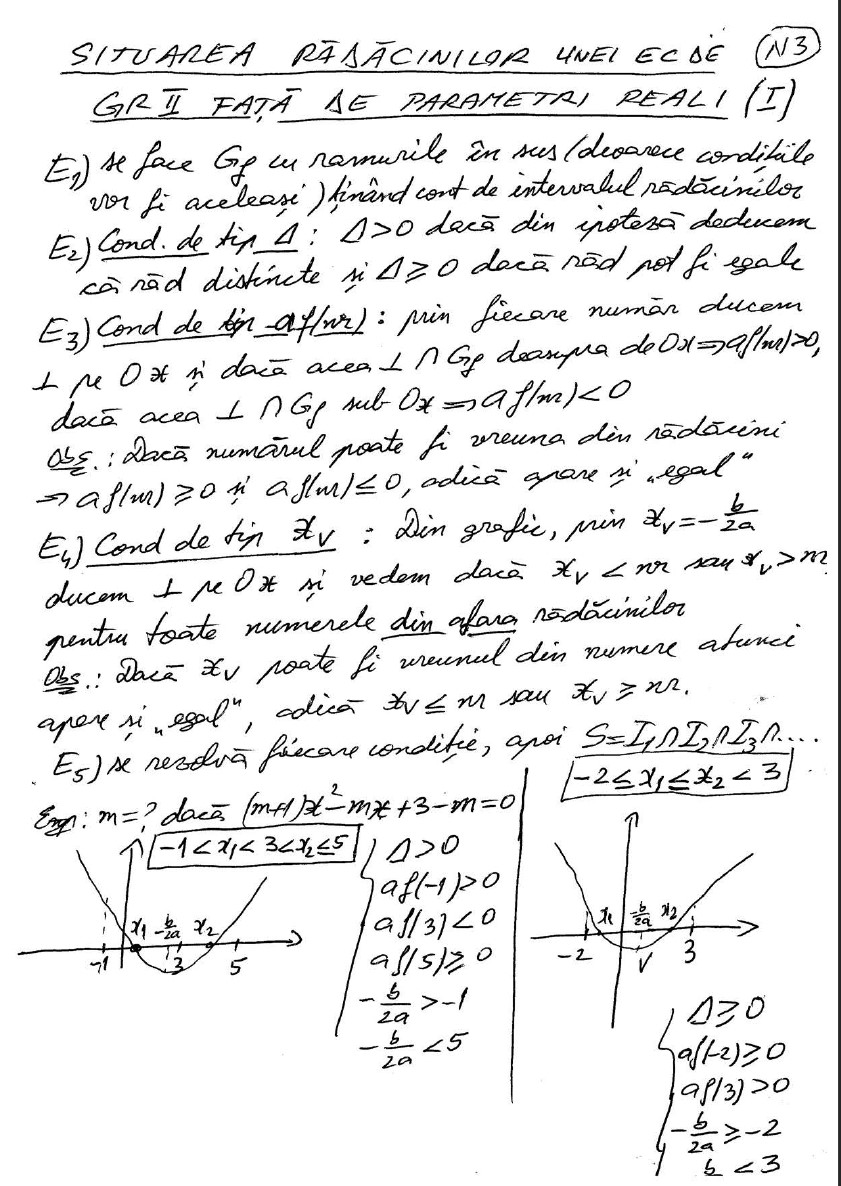 SITUAREA RĂDĂCINILOR UNEI EC DE N3
GR II FAȚĂ DE PARAMETRI REALI (I)
E1) se face Gf cu ramurile în sus (deoarece condițiile
vor fi aceleași) ținând cont de intervalul rădăcinilor
E2) Cond. de tip Δ : Δ>0 dacă din ipoteză deducem
că răd distincte și Δ⩾0 dacă răd pot fi egale
E3) Cond de tip af(nr) : prin fiecare număr ducem
⊥ pe Ox și dacă acea ⊥ ∩ Gf deasupra de Ox ⇒ af(nr)>0,
dacă acea ⊥ ∩ Gf sub Ox ⇒ af(nr)<0
Obs.: Dacă numărul poate fi vreuna din rădăcini
⇒ af(nr) ⩾0 și af(nr)≤0, adică apare și „egal"
E4) Cond de tip xV : Din grafic, prin xV = -b/2a
ducem ⊥ pe Ox și vedem dacă xV < nr sau xV > nr
pentru toate numerele din afara rădăcinilor
Obs.: Dacă xV poate fi vreunul din numere atunci
apare și „egal", adică xV ≤ nr sau xV ⩾ nr.
E5) se rezolvă fiecare condiție, apoi S=I1∩I2∩I3∩....
Exp: m=? dacă (m+1)x²-mx+3-m=0
-1<x1<3<x2≤5
Δ>0
af(-1)>0
af(3)<0
af(5)⩾0
-b/2a >-1
-b/2a <5
x1 -b/2a x2
-1 3 5
-2≤x1≤x2<3
x1 -b/2a x2
-2 V 3
Δ⩾0
af(-2)⩾0
af(3)>0
-b/2a ⩾-2
b <3